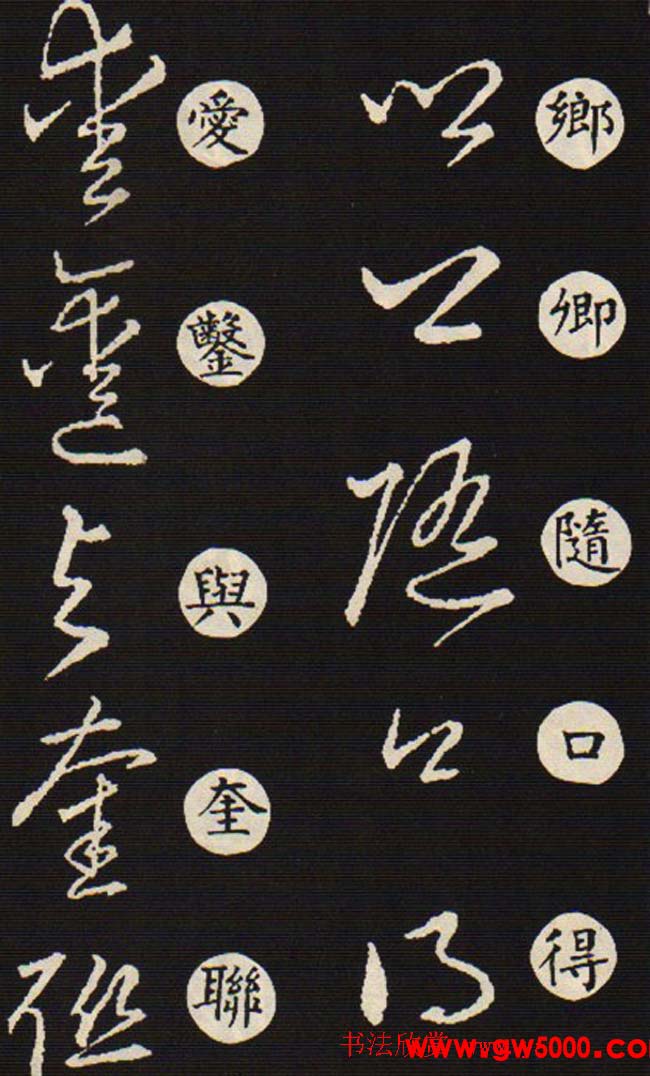 鄉
卿
隨
口
得
愛
鑿
與
奎
聯
书法欣赏 www.gw5000.co